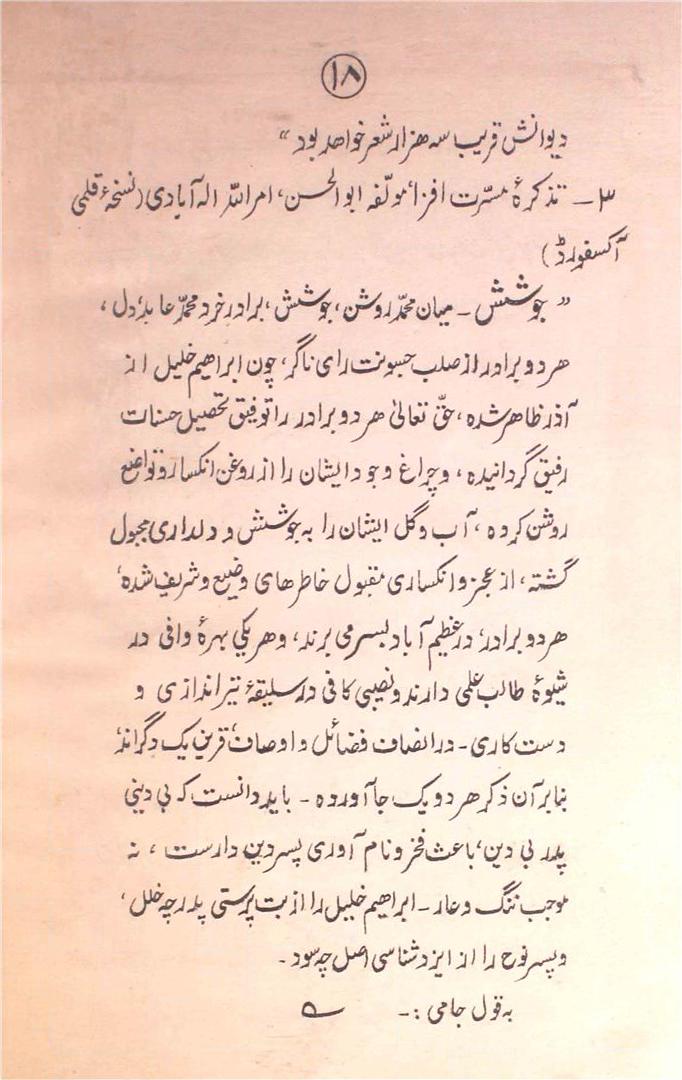 ۱۸
دیوانش قریب سه هزار شعر خواهد بود“
۳۔ تذکرۂ مسرّت افزا، مولّفه ابوالحسن، امراللہ الہ آبادی (نسخۂ قلمی
آکسفورڈ)
” جوشش ۔ میان محمّد روشن، جوشش، برادر خرد محمّد عابد، دل،
هر دو برادر از صلب جسونت رای ناگر، چون ابراهیم خلیل از
آذر ظاهر شده، حقّ تعالیٰ هر دو برادر را توفیق تحصیل حسنات
رفیق گردانیده، و چراغ وجود ایشان را از روغن انکسار و تواضع
روشن کرده، آب و گل ایشان را به جوشش و دلداری مجبول
گشته، از عجز و انکساری مقبول خاطرهای وضیع و شریف شده،
هر دو برادر، در عظیم آباد بسر می برند، و هر یکی بهرۂ وافی در
شیوۂ طالب علمی دارند و نصیبی کافی در سلیقۂ تیر اندازی و
دست کاری۔ در اتصاف فضائل و اوصاف، قرین یک دگراند،
بنابر آن ذکر هر دو یک جا آورده ۔ باید دانست که بی دینی
پدر بی دین، باعث فخر و نام آوری پسر دین دارست، نه
موجب ننگ و عار۔ ابراهیم خلیل را از بت پرستی پدر چه خلل،
و پسر نوح را از ایزد شناسی اصل چه سود۔
به قول جامی :۔